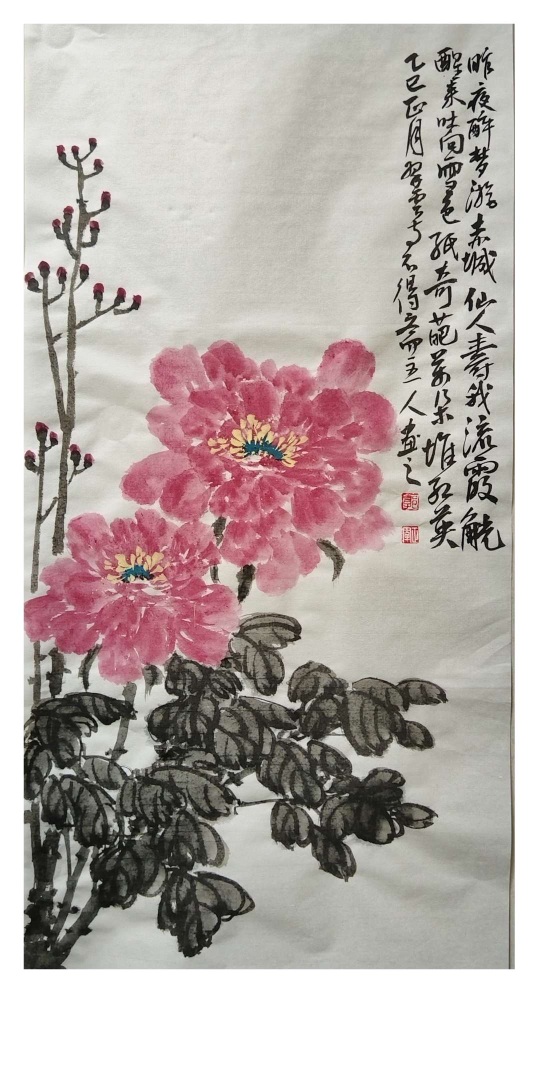 昨夜醉梦游赤城仙人寿我流霞觥
醒来时向画色纸奇葩万朵堆红英
乙巳正月翠云亭不得斋主人画之